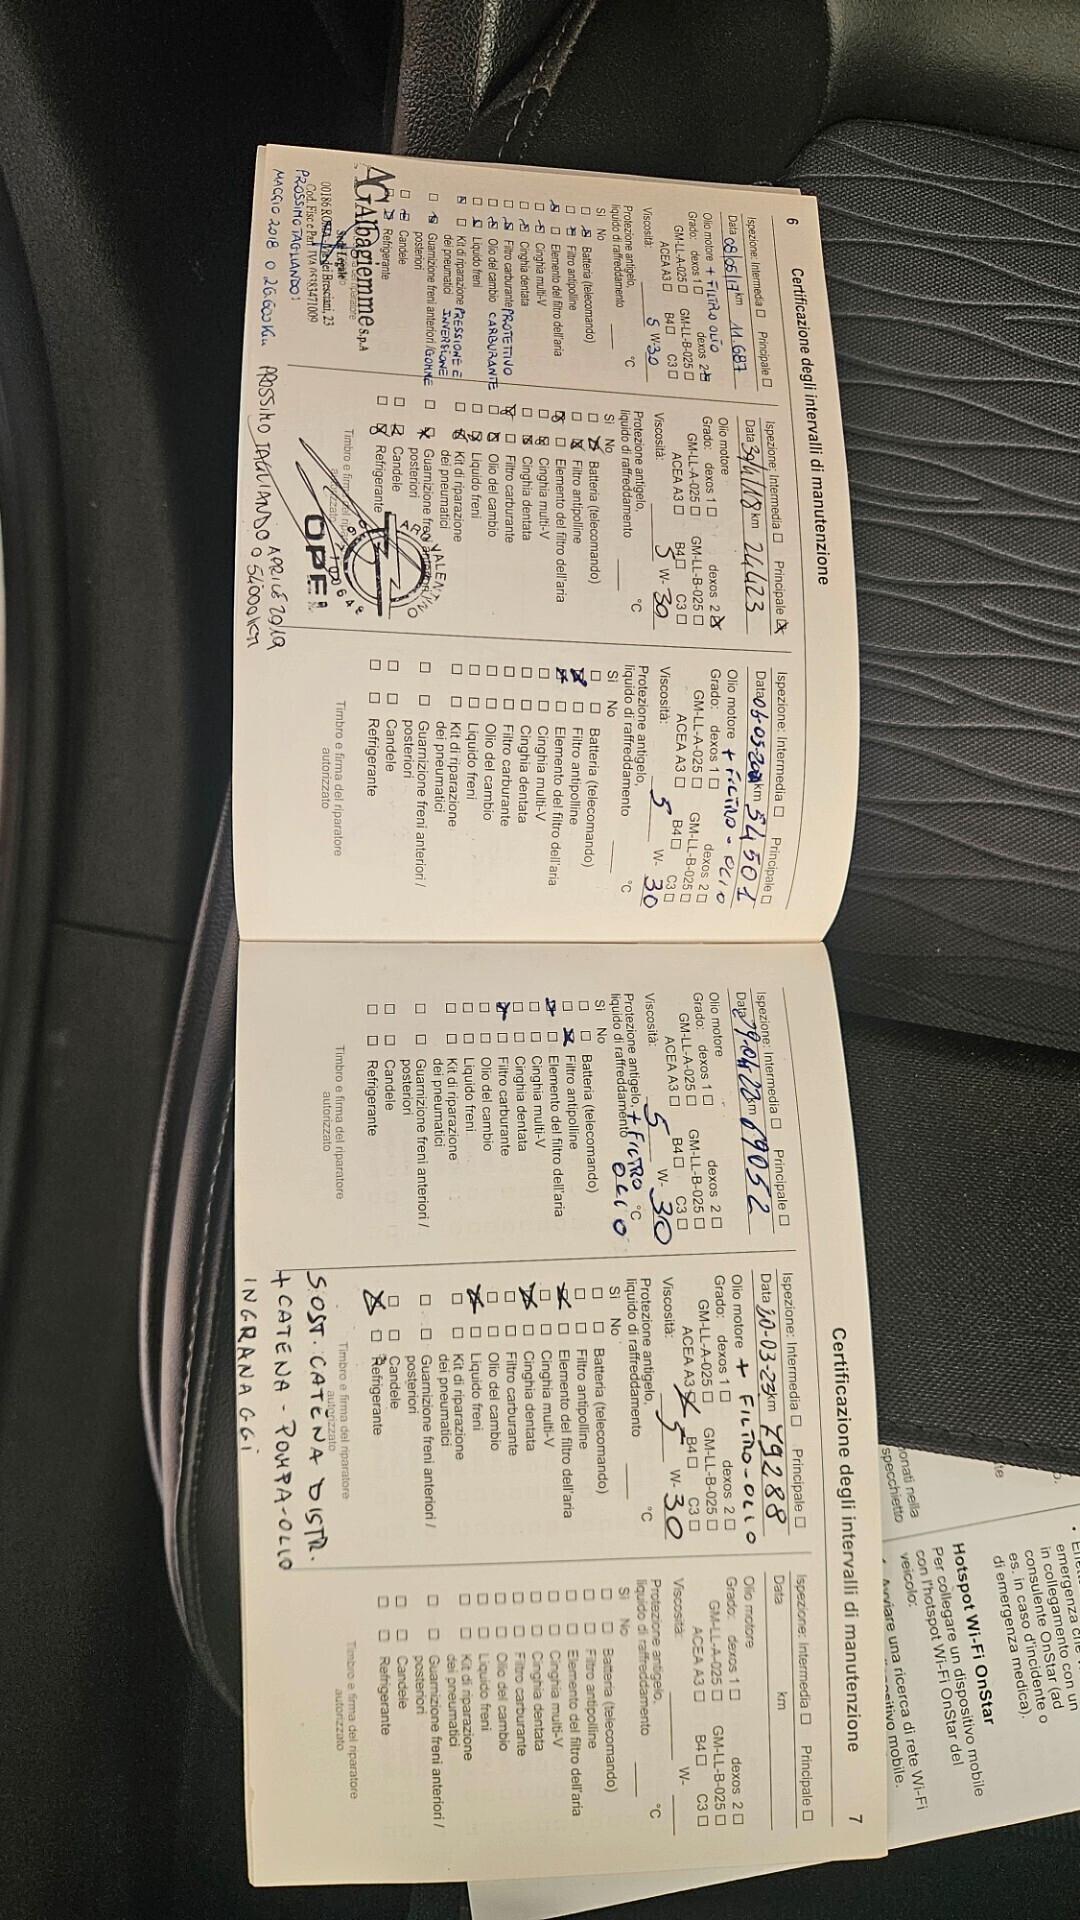 6
Certificazione degli intervalli di manutenzione
Ispezione: Intermedia ☐ Principale ☐
Data 05/05/17 km 11.687
Olio motore + FILTRO OLIO
Grado: dexos 1 ☐ dexos 2 ☒
GM-LL-A-025 ☐ GM-LL-B-025 ☐
ACEA A3 ☐ B4 ☐ C3 ☐
Viscosità: 5 W-30
Protezione antigelo,
liquido di raffreddamento °C
Sì No
Batteria (telecomando)
Filtro antipolline
Elemento del filtro dell'aria
Cinghia multi-V
Cinghia dentata
Filtro carburante PROTETTIVO
Olio del cambio CARBURANTE
Liquido freni
Kit di riparazione PRESSIONE E
dei pneumatici INVERSIONE
Guarnizione freni anteriori / GOMME
posteriori
Candele
Refrigerante
AGAlbagiemme S.p.A
Sede Legale
23
Cod. Fisc e Part IVA
PROSSIMO TAGLIANDO:
MAGGIO 2018 O 26.600 Km
Ispezione: Intermedia ☐ Principale ☒
Data km 24423
Olio motore
Grado: dexos 1 ☐ dexos 2 ☒
GM-LL-A-025 ☐ GM-LL-B-025 ☐
ACEA A3 ☐ B4 ☐ C3 ☐
Viscosità: 5 W-30
Protezione antigelo,
liquido di raffreddamento °C
Sì No
Batteria (telecomando)
Filtro antipolline
Elemento del filtro dell'aria
Cinghia multi-V
Cinghia dentata
Filtro carburante
Olio del cambio
Liquido freni
Kit di riparazione
dei pneumatici
Guarnizione freni anteriori /
posteriori
Candele
Refrigerante
Timbro e firma del riparatore
OPEL
PROSSIMO TAGLIANDO APRILE 2019
O 54000 km
Ispezione: Intermedia ☐ Principale ☐
Data km 54501
Olio motore + FILTRO-OLIO
Grado: dexos 1 ☐ dexos 2 ☐
GM-LL-A-025 ☐ GM-LL-B-025 ☐
ACEA A3 ☐ B4 ☐ C3 ☐
Viscosità: 5 W-30
Protezione antigelo,
liquido di raffreddamento °C
Sì No
Batteria (telecomando)
Filtro antipolline
Elemento del filtro dell'aria
Cinghia multi-V
Cinghia dentata
Filtro carburante
Olio del cambio
Liquido freni
Kit di riparazione
dei pneumatici
Guarnizione freni anteriori /
posteriori
Candele
Refrigerante
Timbro e firma del riparatore
autorizzato
Certificazione degli intervalli di manutenzione
7
Ispezione: Intermedia ☐ Principale ☐
Data 19-04-22 km 69052
Olio motore
Grado: dexos 1 ☐ dexos 2 ☐
GM-LL-A-025 ☐ GM-LL-B-025 ☐
ACEA A3 ☐ B4 ☐ C3 ☐
Viscosità: 5 W-30
Protezione antigelo, + FILTRO
liquido di raffreddamento OLIO °C
Sì No
Batteria (telecomando)
Filtro antipolline
Elemento del filtro dell'aria
Cinghia multi-V
Cinghia dentata
Filtro carburante
Olio del cambio
Liquido freni
Kit di riparazione
dei pneumatici
Guarnizione freni anteriori /
posteriori
Candele
Refrigerante
Timbro e firma del riparatore
autorizzato
Ispezione: Intermedia ☐ Principale ☐
Data 20-03-23 km 79288
Olio motore + FILTRO-OLIO
Grado: dexos 1 ☐ dexos 2 ☐
GM-LL-A-025 ☐ GM-LL-B-025 ☐
ACEA A3 ☒ B4 ☐ C3 ☐
Viscosità: 5 W-30
Protezione antigelo,
liquido di raffreddamento °C
Sì No
Batteria (telecomando)
Filtro antipolline
Elemento del filtro dell'aria
Cinghia multi-V
Cinghia dentata
Filtro carburante
Olio del cambio
Liquido freni
Kit di riparazione
dei pneumatici
Guarnizione freni anteriori /
posteriori
Candele
Refrigerante
Timbro e firma del riparatore
autorizzato
SOST. CATENA DISTR.
+ CATENA - POMPA-OLIO
INGRANAGGI
Ispezione: Intermedia ☐ Principale ☐
Data km
Olio motore
Grado: dexos 1 ☐ dexos 2 ☐
GM-LL-A-025 ☐ GM-LL-B-025 ☐
ACEA A3 ☐ B4 ☐ C3 ☐
Viscosità: W-
Protezione antigelo,
liquido di raffreddamento °C
Sì No
Batteria (telecomando)
Filtro antipolline
Elemento del filtro dell'aria
Cinghia multi-V
Cinghia dentata
Filtro carburante
Olio del cambio
Liquido freni
Kit di riparazione
dei pneumatici
Guarnizione freni anteriori /
posteriori
Candele
Refrigerante
Timbro e firma del riparatore
autorizzato
specchietto
emergenza che
in collegamento con un
consulente OnStar (ad
es. in caso d'incidente o
di emergenza medica).
Hotspot Wi-Fi OnStar
Per collegare un dispositivo mobile
con l'hotspot Wi-Fi OnStar del
veicolo:
Avviare una ricerca di rete Wi-Fi
mobile.